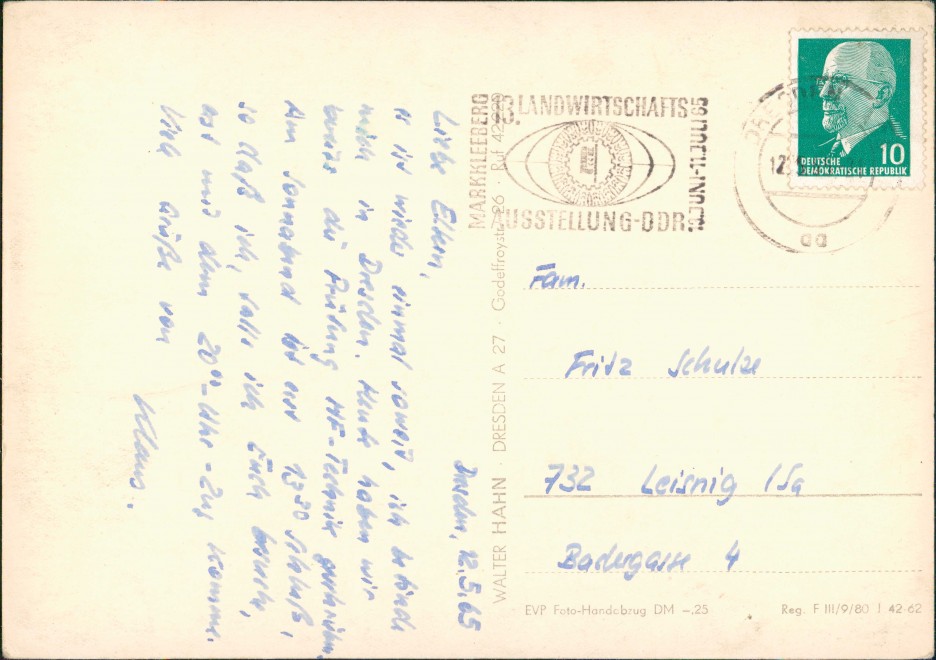 Dresden, 12.5.65
Liebe Eltern,
es ist wieder einmal soweit, ich befinde
mich in Dresden. Heute haben wir
bereits die Prüfung HF-Technik geschrieben.
Am Sonnabend ist erst 13³⁰ Schluß,
so daß ich, falls ich Euch besuche,
erst mit dem 20⁰⁰-Uhr-Zug komme.
Viele Grüße von
Klaus.
WALTER HAHN · DRESDEN A 27 · Godeffroystr. 26 · Ruf 42
MARKKLEEBERG
13. LANDWIRTSCHAFTS
AUSSTELLUNG-DDR
JUNI-11.JULI 65
DRESDEN
12.5.
aa
DEUTSCHE
DEMOKRATISCHE REPUBLIK
10
Fam.
Fritz Schulze
732 Leisnig /Sa
Badergasse 4
EVP Foto-Handabzug DM -,25
Reg. F III/9/80 J 42-62